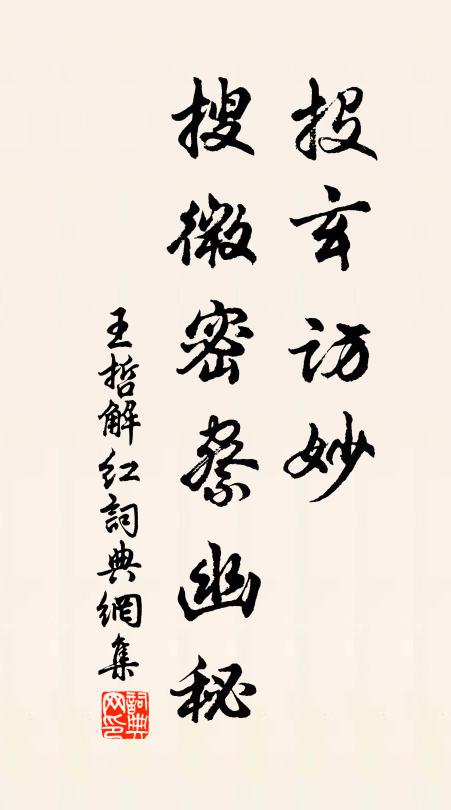 投玄访妙
搜微密察幽秘
王哲解红詞典網集
詞典网印